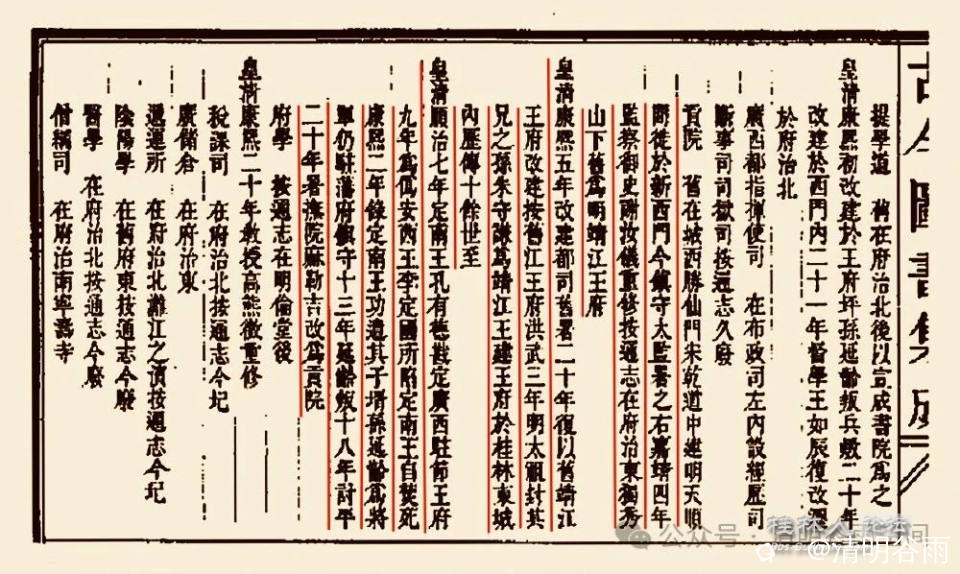 古今圖書集成
提學道　舊在府治北後以宣成書院為之
皇清康熙初改建於王府坪孫延齡叛兵燬二十年
改建於西門內二十一年督學王如辰復改
於府治北
廣西都指揮使司　在布政司左內設經歷司
斷事司司獄司按通志久廢
貢院　舊在城西勝仙門宋乾道中建明天順
間徙於新西門今鎮守太監署之右嘉靖四年
監察御史謝汝儀重修按通志在府治東獨秀
山下舊為明靖江王府
皇清康熙五年改建都司舊署二十年復以舊靖江
王府改建按舊江王府洪武三年明太祖封其
兄之孫朱守謙為靖江王建王府於桂林東城
內歷傳十餘世至
皇清順治七年定南王孔有德戡定廣西駐節王府
九年為偽安西王李定國所陷定南王自焚死
康熙二年錄定南王功遺其子壻孫延齡為將
軍仍駐藩府鎮守十三年延齡叛十八年討平
二十年署撫院麻勒吉改為貢院
府學　按通志在明倫堂後
皇清康熙二十年教授高熊徵重修
稅課司　在府治北按通志今圮
廣儲倉　在府治東
遞運所　在府治北灕江之濱按通志今圮
陰陽學　在舊府東按通志今廢
醫學　在府治北按通志今廢
僧綱司　在府治南寧壽寺
桂林人论坛
公众号
@清明谷雨